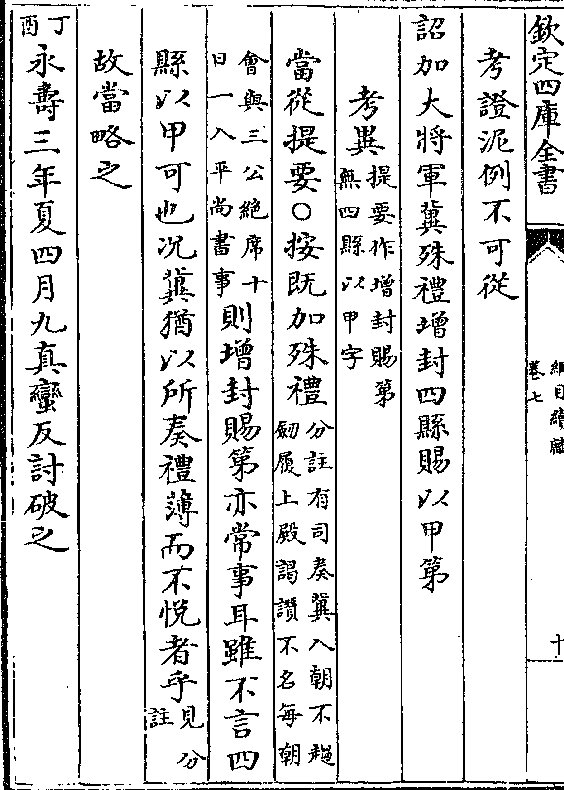 欽定四庫全書
綱目續麟
卷七
十
考證泥例不可從
詔加大將軍冀殊禮增封四縣賜以甲第
考異提要作增封賜第無四縣以甲字
當從提要○按既加殊禮分註有司奏冀入朝不趨劒履上殿謁讚不名每朝
會與三公絶席十日一入平尚書事則增封賜第亦常事耳雖不言四
縣以甲可也况冀猶以所奏禮薄而不悅者乎見分註
故當略之
丁酉永壽三年夏四月九真蠻反討破之